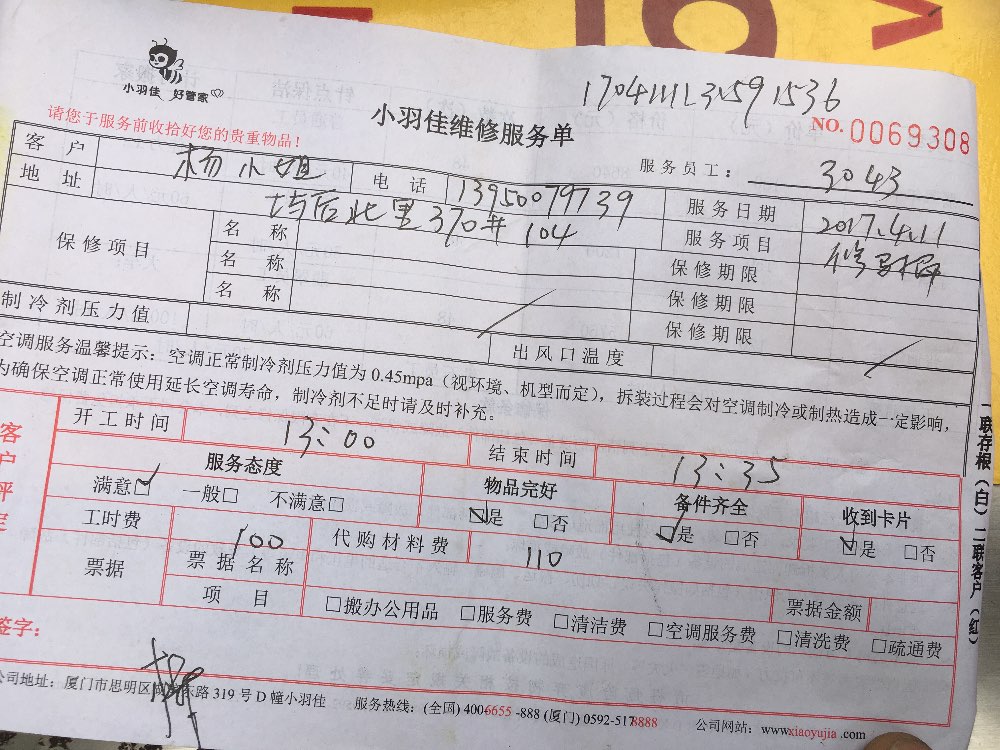 小羽佳 好管家
17041112159 1536
请您于服务前收拾好您的贵重物品！
小羽佳维修服务单
NO. 0069308
服务员工： 3043
客户 杨小姐 电话 13950079739 服务日期 2017.4.11
地址 后北里370# 104 服务项目 修
保修项目 名称 保修期限
名称 保修期限
名称 保修期限
制冷剂压力值 出风口温度
空调服务温馨提示：空调正常制冷剂压力值为 0.45mpa（视环境、机型而定），拆装过程会对空调制冷或制热造成一定影响，
为确保空调正常使用延长空调寿命，制冷剂不足时请及时补充。
开工时间 13:00 结束时间 13:35
服务态度 物品完好 备件齐全 收到卡片
满意☑ 一般□ 不满意□ ☑是 □否 ☑是 □否 ☑是 □否
工时费 100 代购材料费 110
票据 票据名称 票据金额
项目 □搬办公用品 □服务费 □清洁费 □空调服务费 □清洗费 □疏通费
客户评定
签字：
公司地址：厦门市思明区 东路 319 号 D 幢小羽佳 服务热线：(全国) 4006655 -888 (厦门) 0592-5178888 公司网站：www.xiaoyujia .com
一联存根（白）二联客户（红）